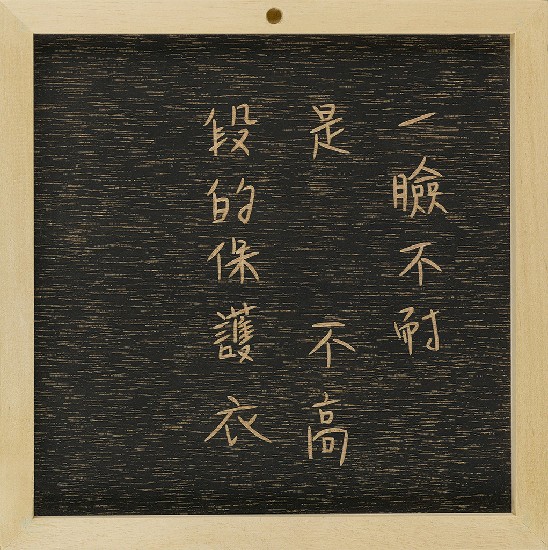 一臉不耐
是 不高
段的保護衣